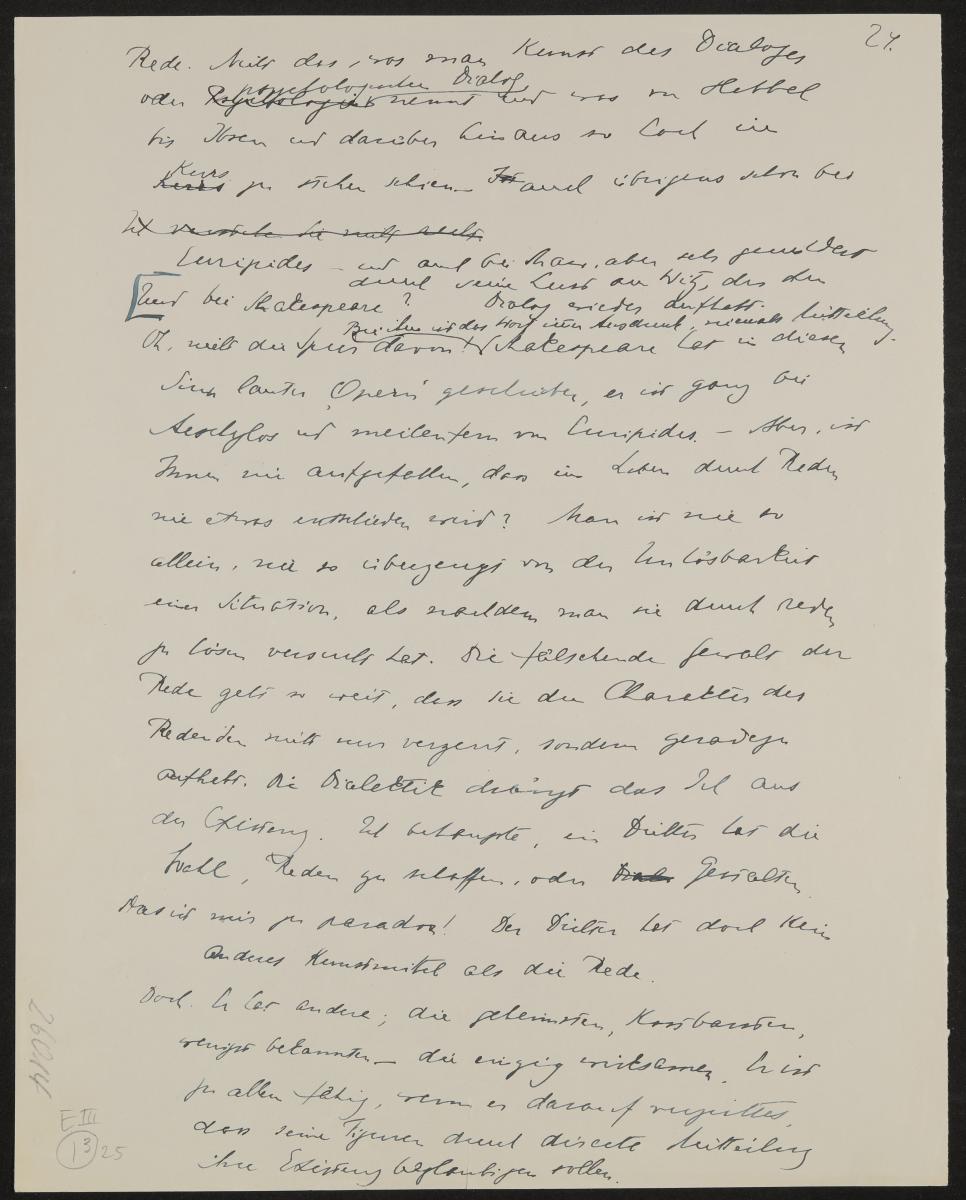 24.
Rede. Nicht das, was man Kunst des Dialoges
psychologischen Dialog
oder Psychologie nennt und was von Hebbel
bis Ibsen und darüber hinaus so hoch im
Kurs
Kurs zu stehen schien – auch übrigens schon bei
Ich verstehe Sie nicht recht.
Euripides – und auch bei Shaw, aber sehr gemildert
durch seine Lust am Witz, der den
Und bei Shakespeare? Dialog wieder aufhebt.
Bei ihm ist das Wort immer Ausdruck, niemals Mitteilung.
Oh, nicht die Spur davon! Shakespeare hat in diesem
Sinn lauter „Opern“ geschrieben, er ist ganz bei
Aeschylos und meilenfern von Euripides. – Aber, ist
Ihnen nie aufgefallen, dass im Leben durch Reden
nie etwas entschieden wird? Man ist nie so
allein, nie so überzeugt von der Unlösbarkeit
einer Situation, als nachdem man sie durch reden
zu lösen versucht hat. Die fälschende Gewalt der
Rede geht so weit, dass sie den Charakter des
Redenden nicht nur verzerrt, sondern geradezu
aufhebt. Die Dialektik drängt das Ich aus
der Existenz. Ich behaupte, ein Dichter hat die
Wahl, Reden zu schaffen, oder Gestalten.
Das ist mir zu paradox! Der Dichter hat doch kein
anderes Kunstmittel als die Rede.
Doch. Er hat andere; die geheimsten, kostbarsten,
wenigst bekannten – die einzig wirksamen. Er ist
zu allem fähig, wenn er darauf verzichtet,
dass seine Figuren durch directe Mitteilung
ihre Existenz beglaubigen sollen.
26014
E III
13 25